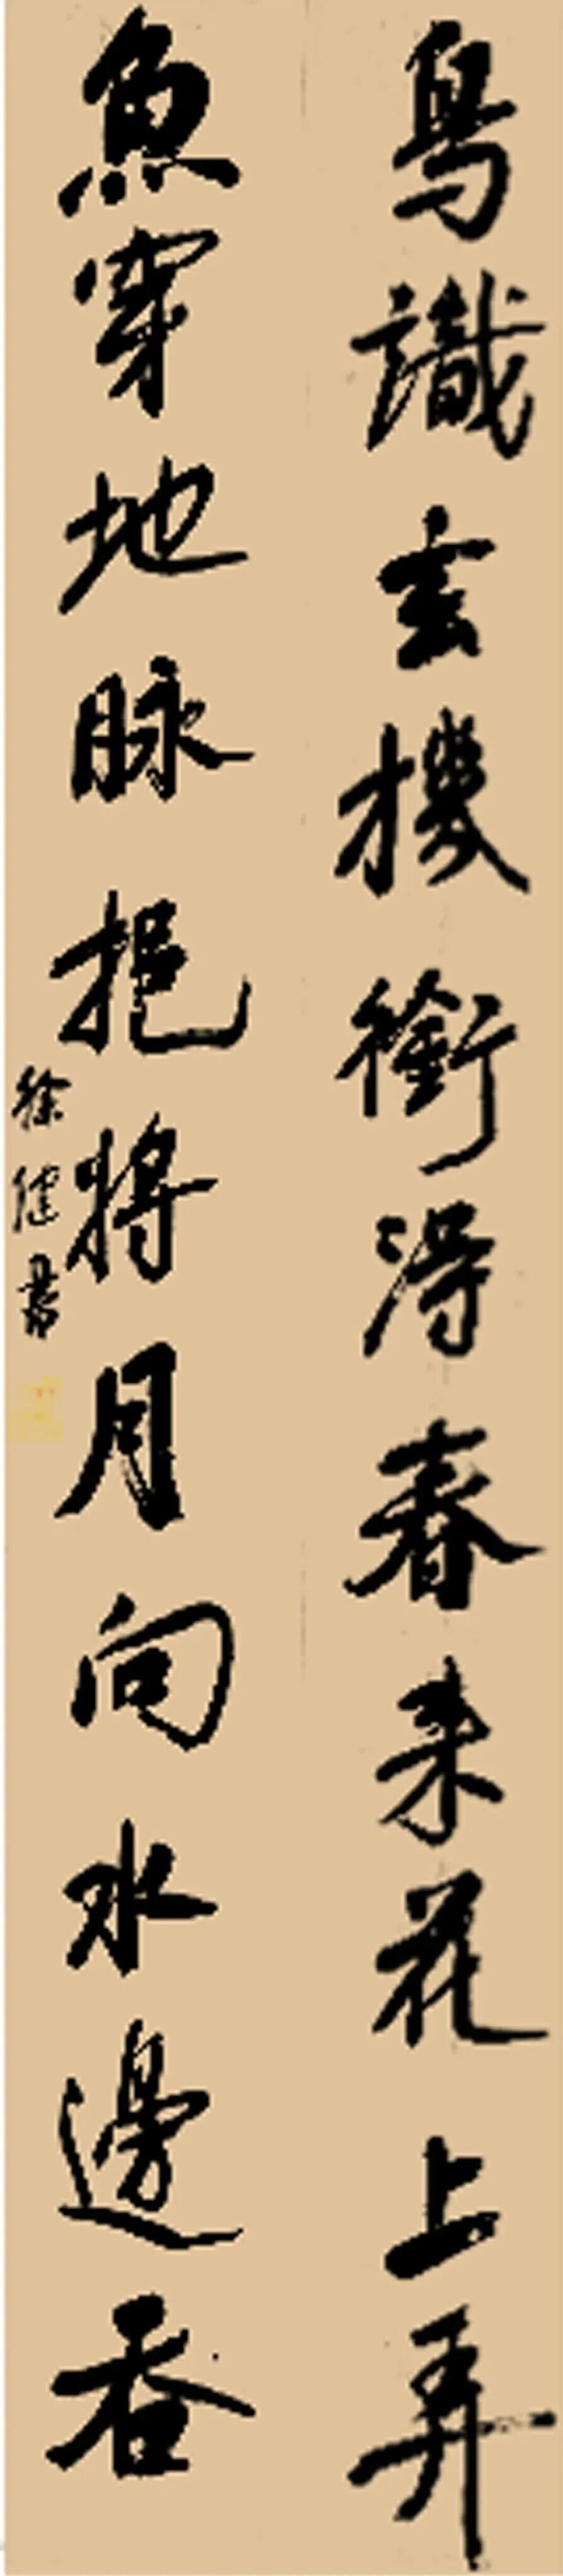 鳥識玄機銜得春來花上弄
魚穿地脉挹將月向水邊吞
徐健書